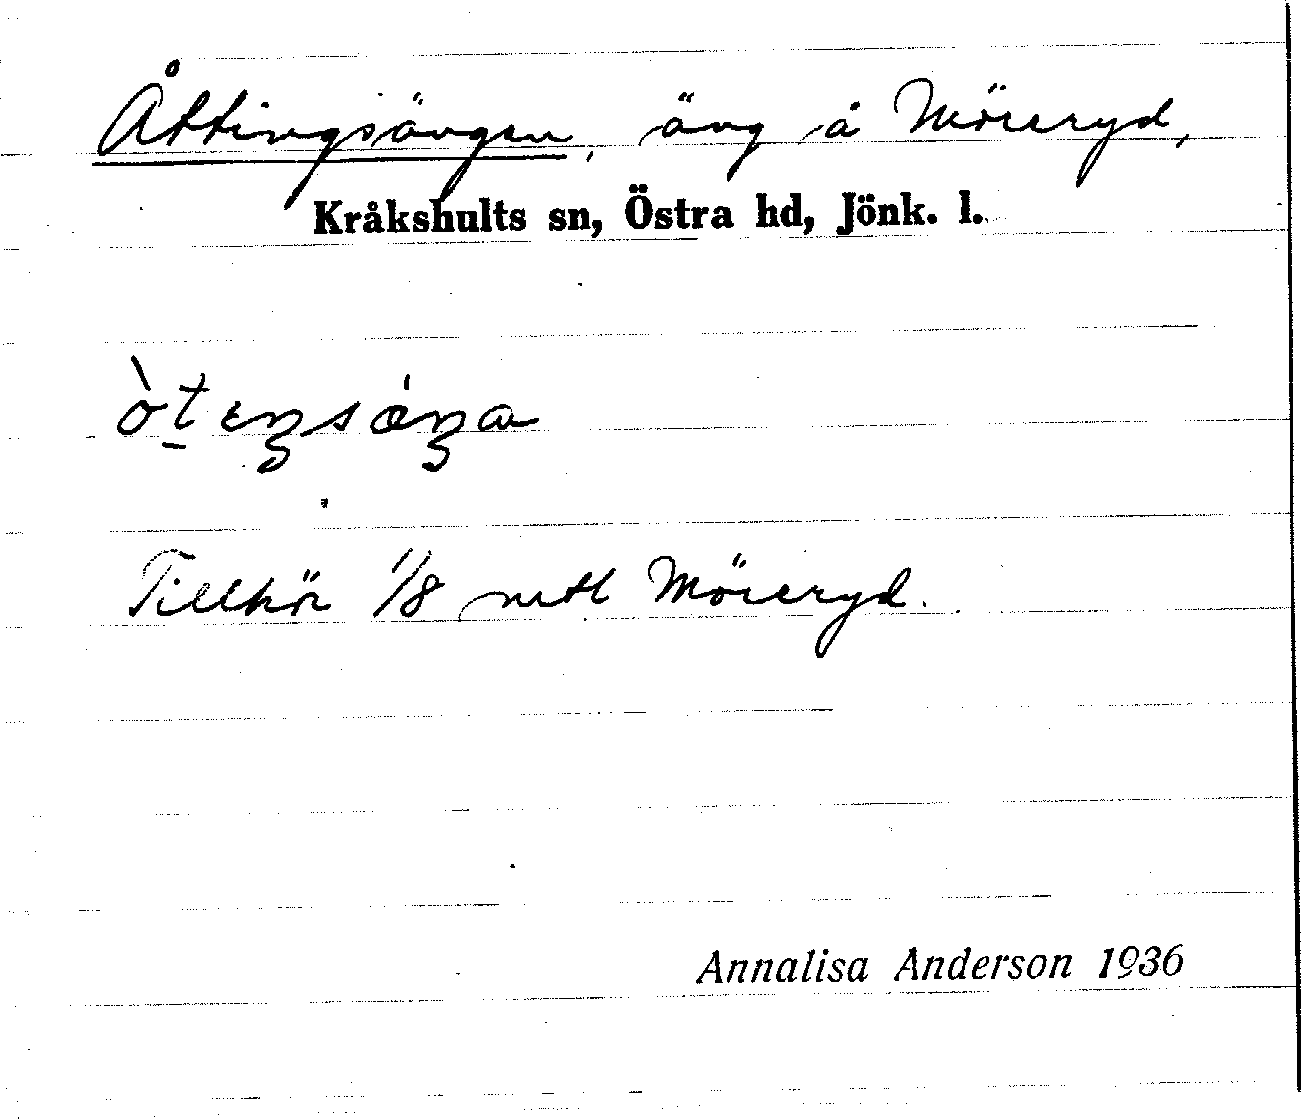 Åttingsängen, äng å Möreryd,
Kråkshults sn, Östra hd, Jönk. l.
òt̠eŋsáŋa
Tillhör 1/8 mtl Möreryd.
Annalisa Anderson 1936